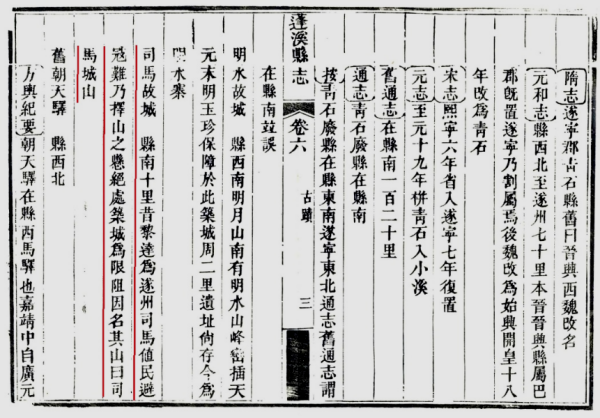 隋志遂寧郡青石縣舊曰晉興西魏改名
元和志縣西北至遂州七十里本晉晉興縣屬巴
郡既置遂寧乃割屬焉後魏改為始興開皇十八
年改為青石
宋志熙寧六年省入遂寧七年復置
元志至元十九年併青石入小溪
舊通志在縣南一百二十里
通志青石廢縣在縣南
按青石廢縣在縣東南遂寧東北通志舊通志謂
蓬溪縣志
卷六
古蹟
三
在縣南並誤
明水故城 縣西南明月山南有明水山峰巒插天
元末明玉珍保障於此築城周二里遺址尚存今為
明水寨
司馬故城 縣南十里昔黎達為遂州司馬值民避
寇難乃擇山之懸絕處築城為限阻因名其山曰司
馬城山
舊朝天驛 縣西北
方輿紀要朝天驛在縣西馬驛也嘉靖中自廣元